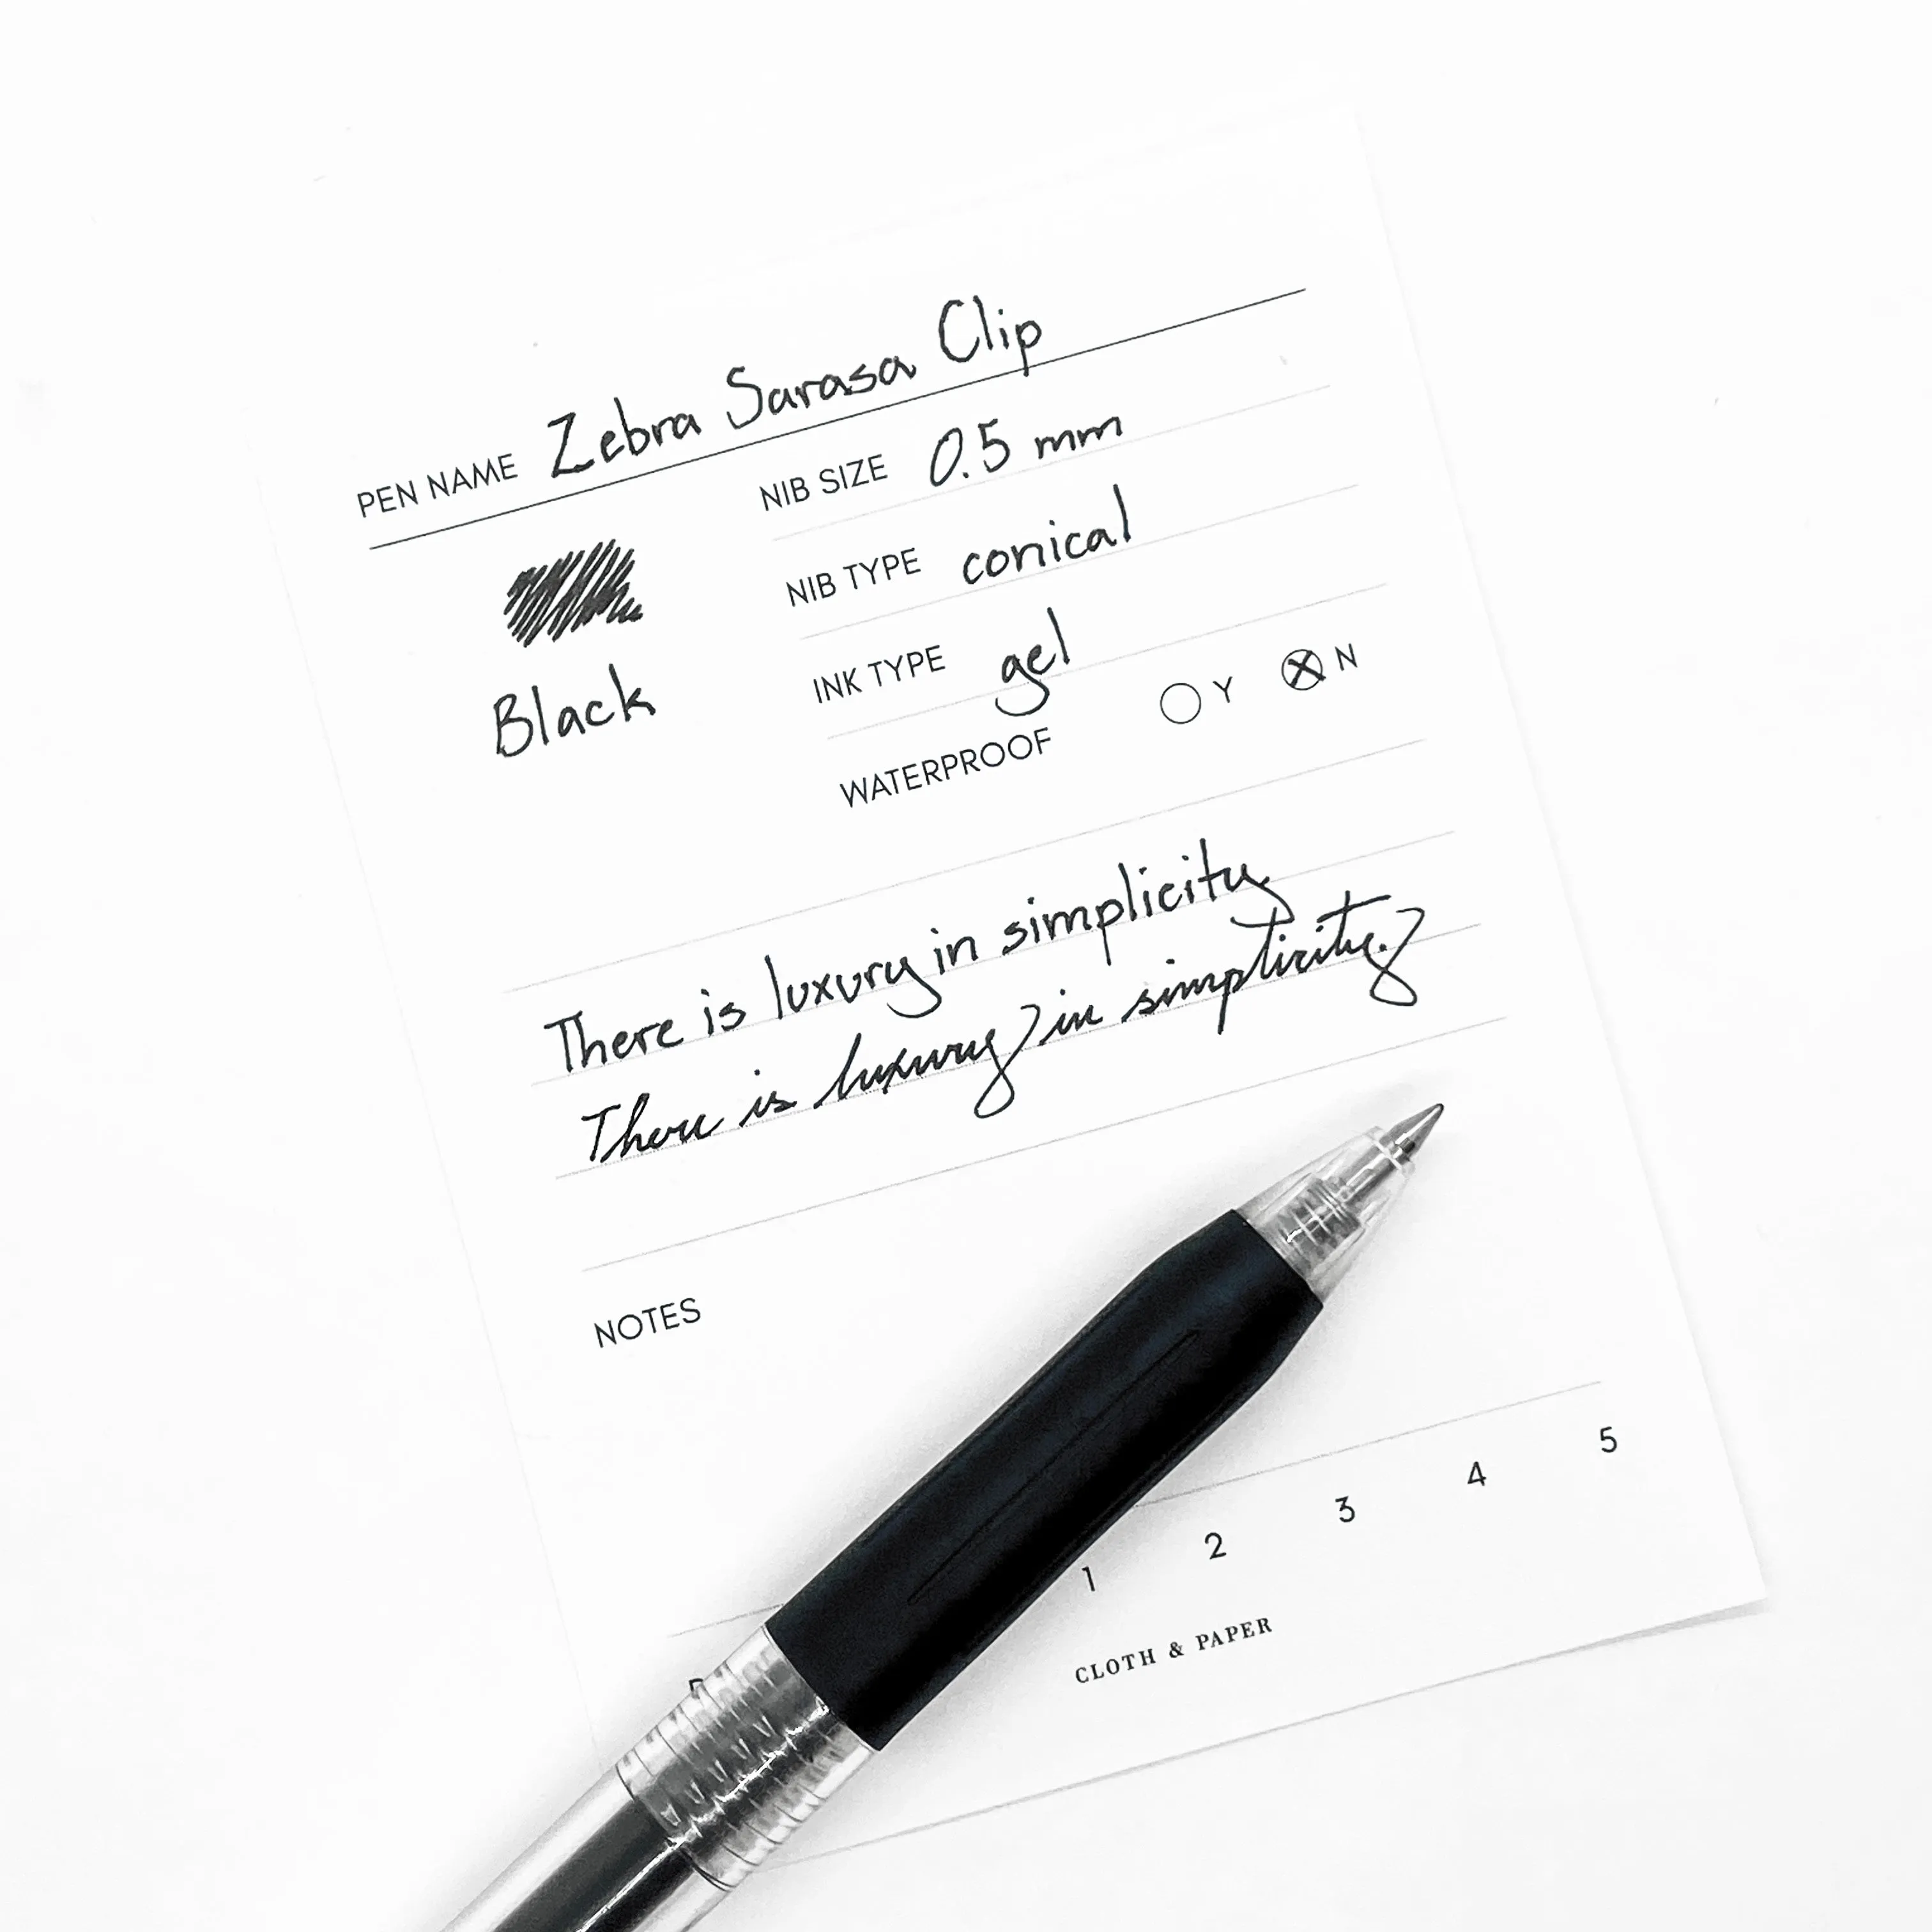 PEN NAME Zebra Sarasa Clip
NIB SIZE 0.5 mm
NIB TYPE conical
INK TYPE gel
Black
WATERPROOF Y N
There is luxury in simplicity
There is luxury in simplicity.
NOTES
1 2 3 4 5
CLOTH & PAPER